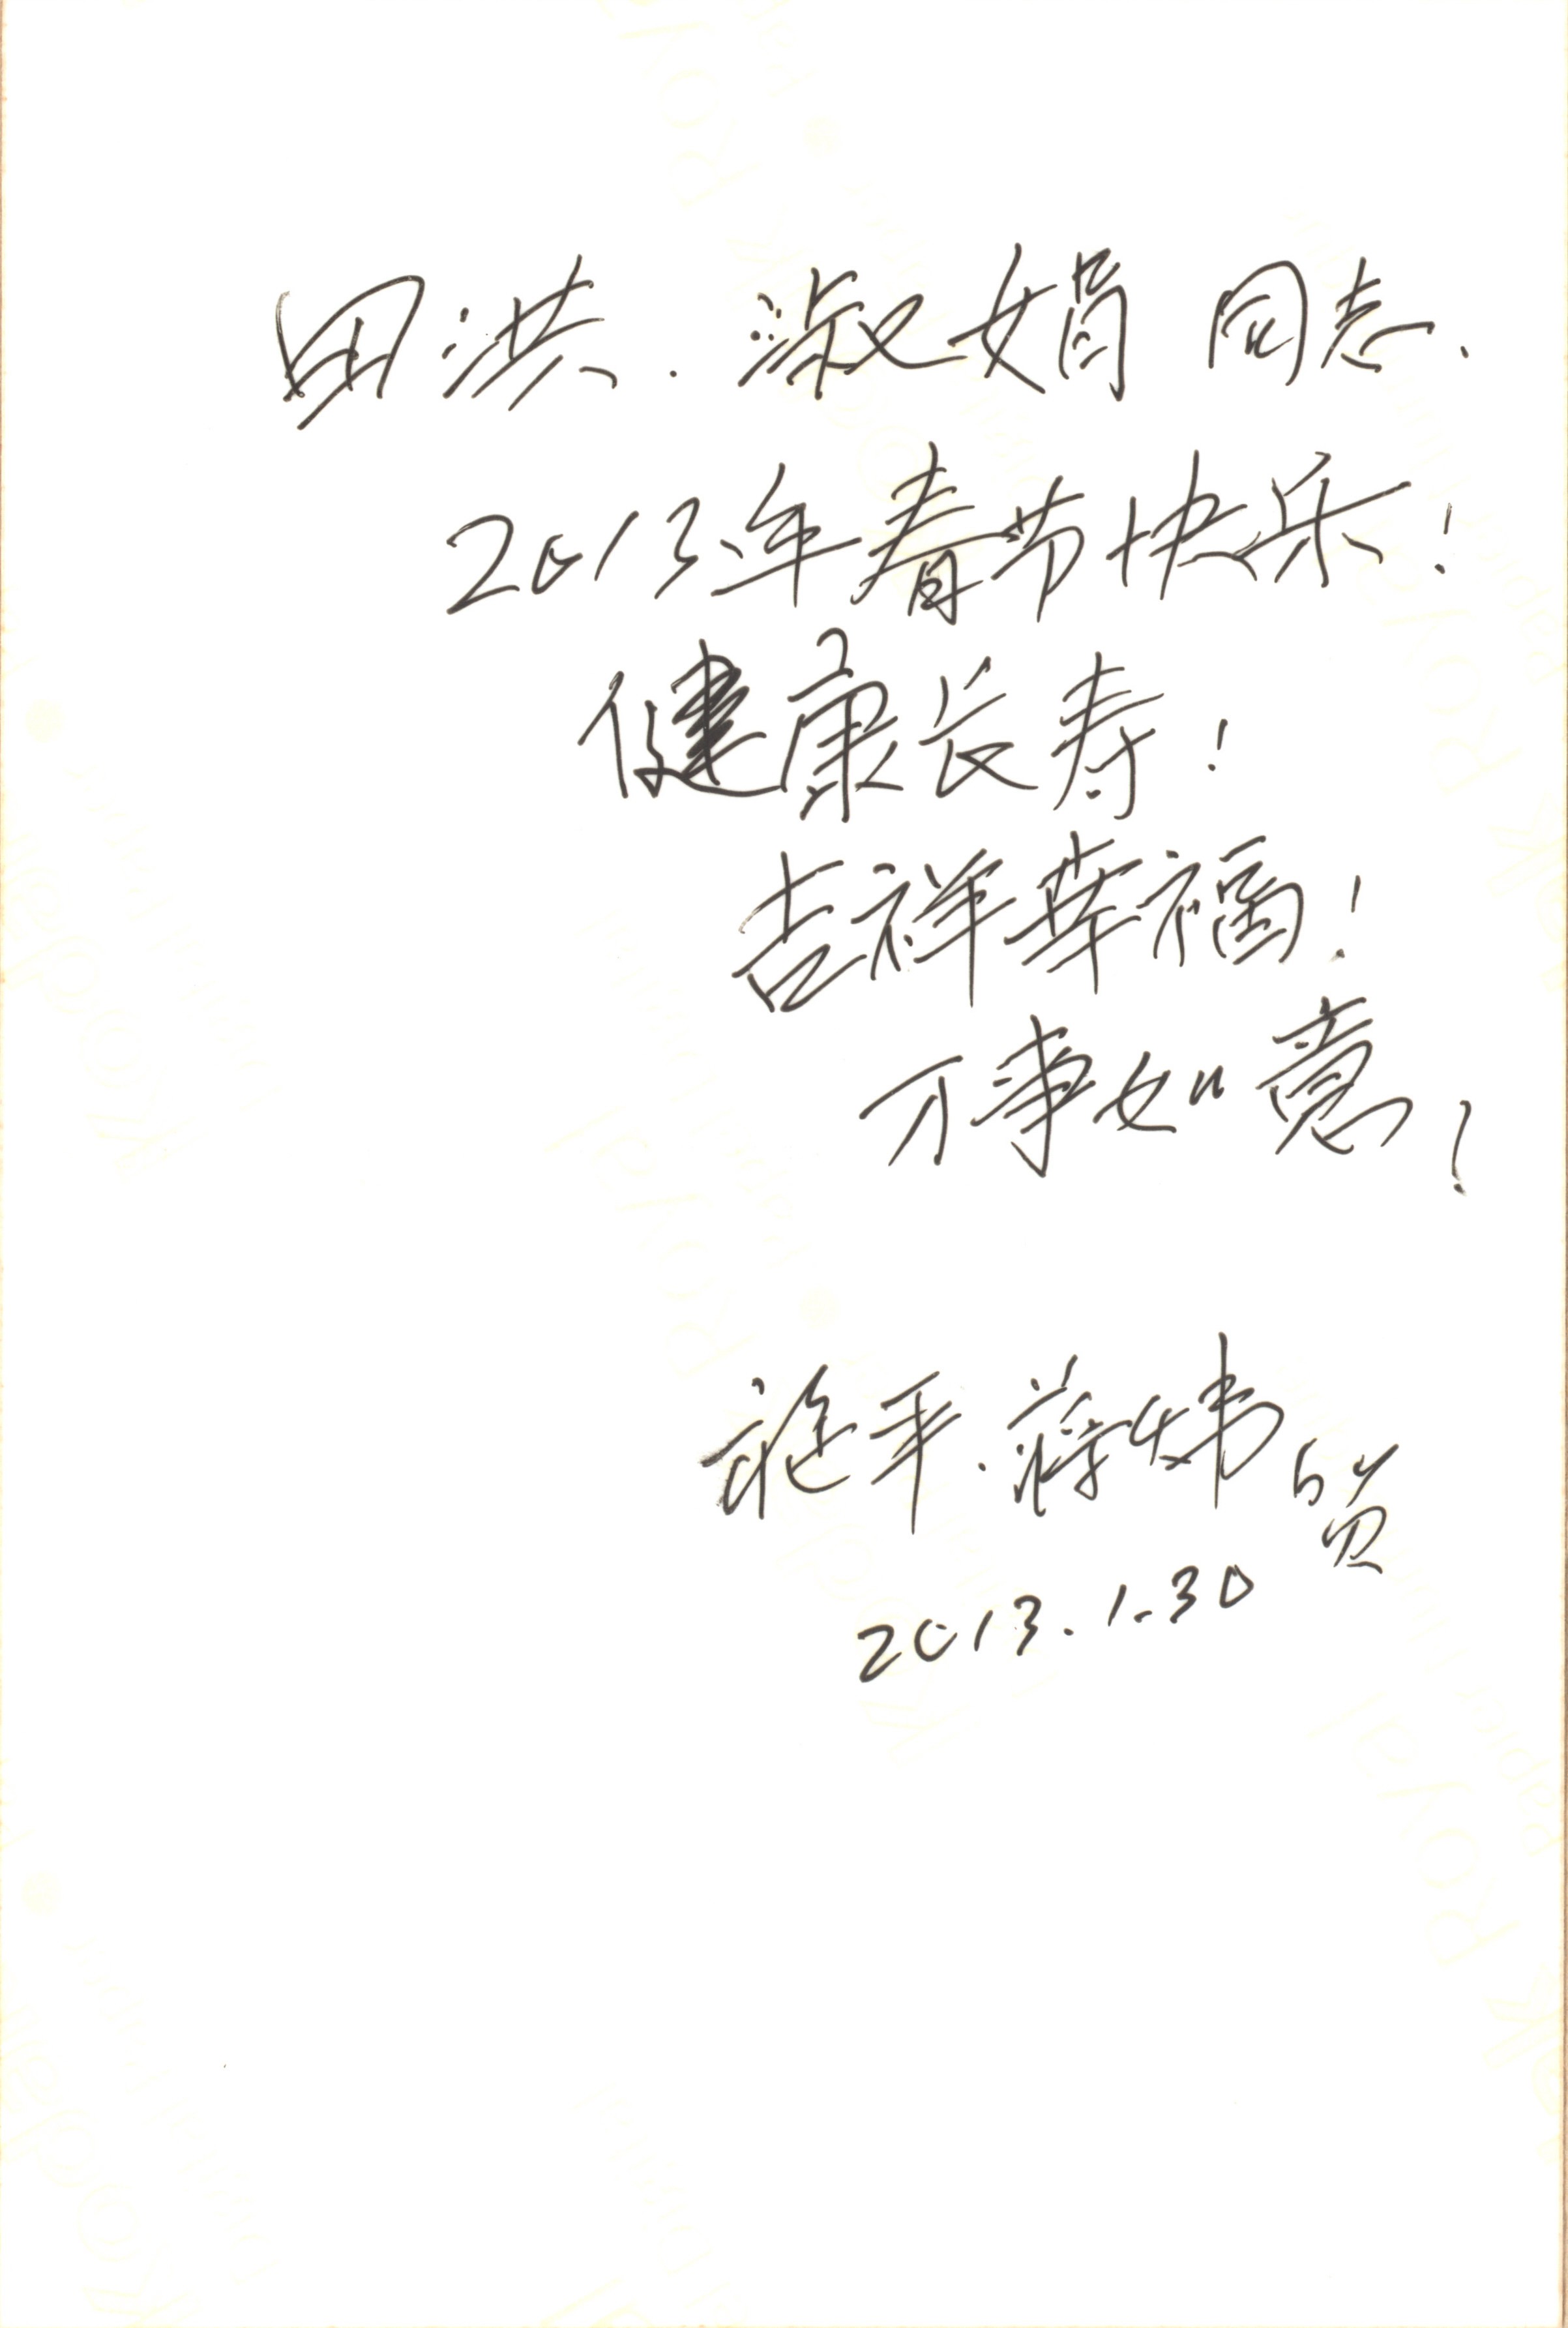 田洪.淑娟 同志.
2013年春节快乐!
健康长寿!
吉祥幸福!
万事如意!
施平.蒋炜 贺
2013.1.30